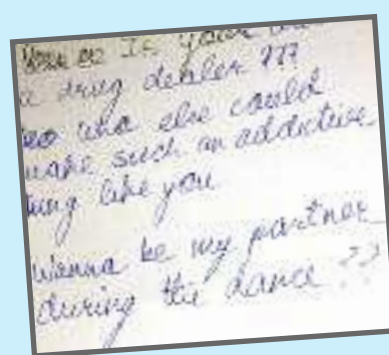 Is your dad
a drug dealer ???
who else could
make such an addictive
thing like you
Wanna be my partner
during the dance ??